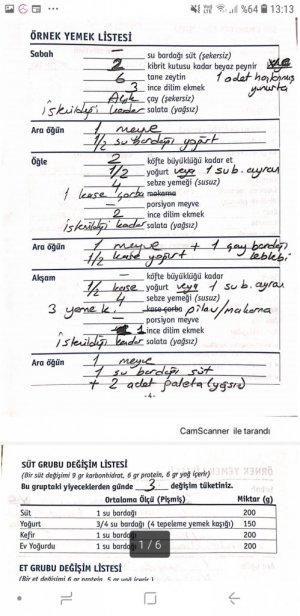 %64 13:13
ÖRNEK YEMEK LİSTESİ
Sabah
— su bardağı süt (şekersiz)
2 kibrit kutusu kadar beyaz peynir veya
6 tane zeytin 1 adet haşlanmış yumurta
3 ince dilim ekmek
Açık çay (şekersiz)
istenildiği kadar salata (yağsız)
Ara öğün
1 meyve
1/2 su bardağı yoğurt
Öğle
2 köfte büyüklüğü kadar et
1/2 yoğurt veya 1 su b. ayran
4 sebze yemeği (susuz)
1 kase çorba makarna
— porsiyon meyve
2 ince dilim ekmek
istenildiği kadar salata (yağsız)
Ara öğün
1 meyve + 1 çay bardağı leblebi
1/2 kase yoğurt
Akşam
— köfte büyüklüğü kadar
1/2 kase yoğurt veya 1 su b. ayran
4 sebze yemeği (susuz)
3 yemek k. kase çorba pilav/makarna
— porsiyon meyve
1 ince dilim ekmek
istenildiği kadar salata (yağsız)
Ara öğün
1 meyve
1 su bardağı süt
+ 2 adet (yağsız)
-4-
CamScanner ile tarandı
SÜT GRUBU DEĞİŞİM LİSTESİ
(Bir süt değişimi 9 gr karbonhidrat, 6 gr protein, 6 gr yağ içerir)
Bu gruptaki yiyeceklerden günde 3 değişim tüketiniz.
Ortalama Ölçü (Pişmiş) Miktar (g)
Süt 1 su bardağı 200
Yoğurt 3/4 su bardağı (4 tepeleme yemek kaşığı) 150
Kefir 1 su bardağı 200
Ev Yoğurdu 1 su bardağı 200
1 / 6
ET GRUBU DEĞİŞİM LİSTESİ
(Bir et değişimi 6 gr protein, 5 gr yağ içerir)